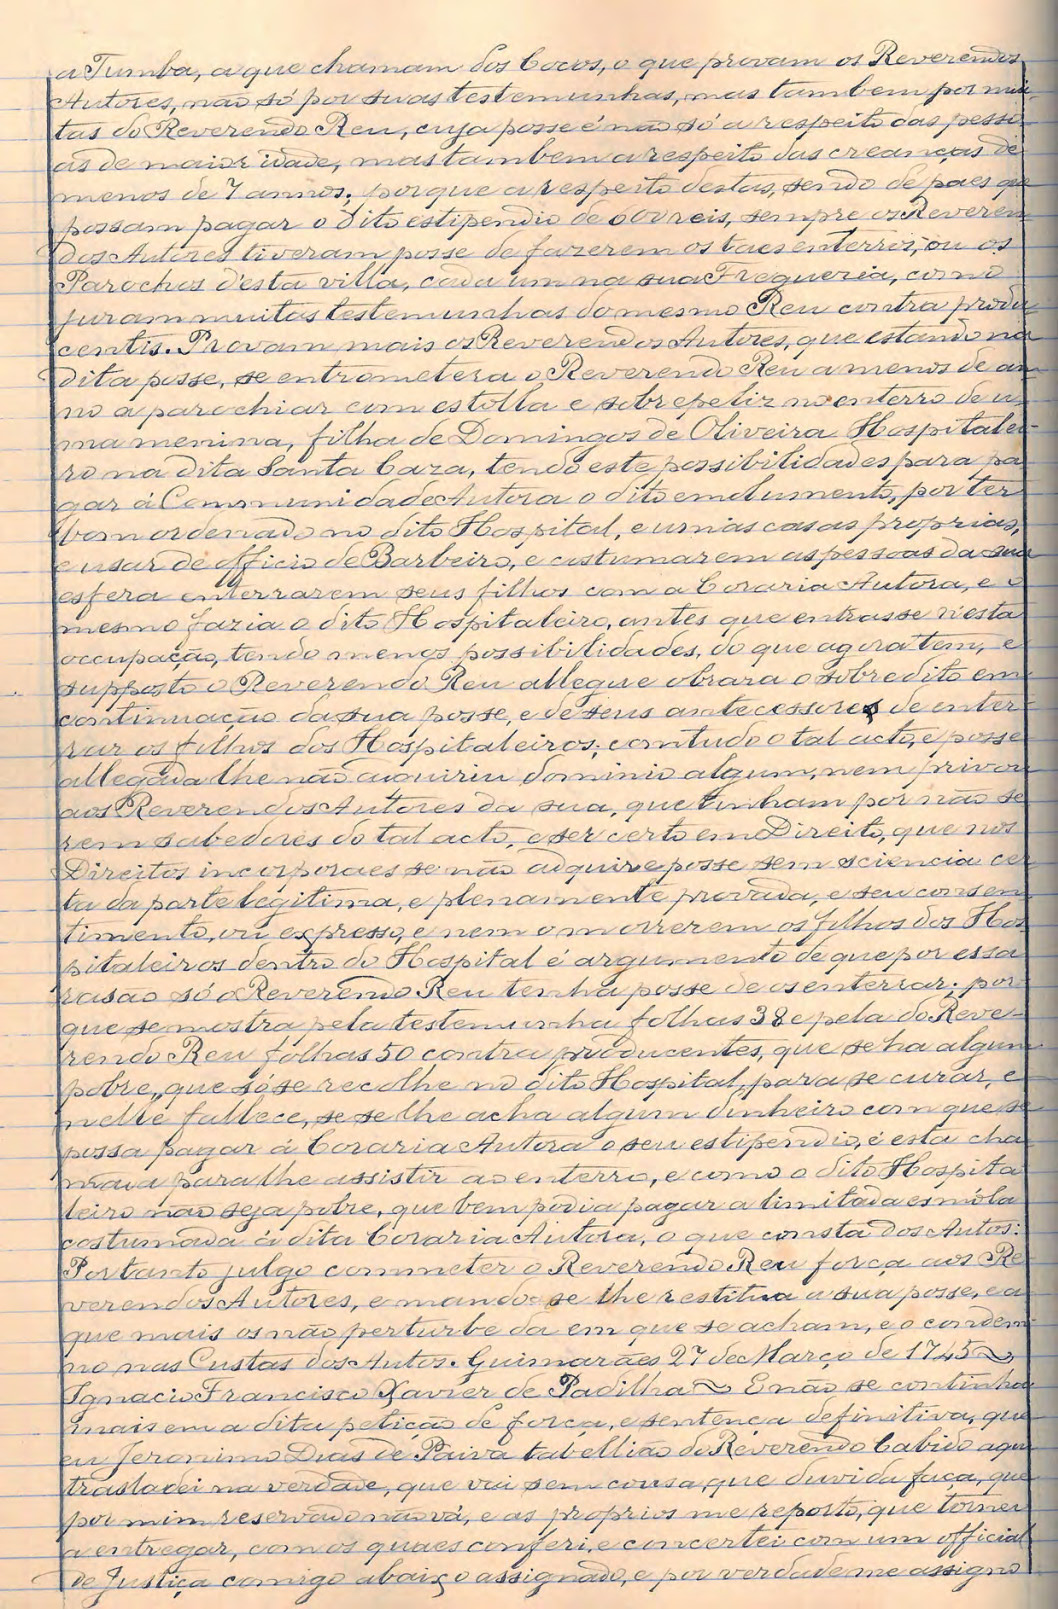 a Tumba, a que chamam dos Cocos, o que provam os Reverendos
Autores, não só por suas testemunhas, mas tambem por mui
tas do Reverendo Reu, cuja posse é não só a respeito das pesso
as de maior idade, mas tambem a respeito das creanças de
menos de 7 annos; porque a respeito destas, sendo de paes que
possam pagar o dito estipendio de 600 reis, sempre os Reveren
dos Autores tiveram posse de fazerem os taes enterros, ou os
Parochos d'esta villa, cada um na sua Freguezia, como
juram muitas testemunhas do mesmo Reu contra produ
centis. Provam mais os Reverendos Autores, que estando na
dita posse, se entrometera o Reverendo Reu a menos de an
no a parochiar com estolla e sobrepeliz no enterro de u
ma menina, filha de Domingos de Oliveira Hospitalei
ro na dita Santa Caza, tendo este possibilidades para pa
gar á Communidade Autora o dito emolumento, por ter
bom ordenado no dito Hospital, e umas casas proprias,
e usar de officio de Barbeiro, e costumarem as pessoas da sua
esfera enterrarem seus filhos com a Coraria Autora, e o
mesmo fazia o dito Hospitaleiro, antes que entrasse n'esta
occupação, tendo menos possibilidades, do que agora tem, e
supposto o Reverendo Reu allegue obrara o sobredito em
continuação da sua posse, e de seus antecessores de enter
rar os filhos dos Hospitaleiros; comtudo o tal acto, e posse
allegada lhe não adquiriu dominio algum, nem privou
aos Reverendos Autores da sua, que tinham por não se
rem sabedores do tal acto, e ser certo em Direito, que nos
Direitos incorporaes se não adquire posse sem sciencia cer
ta da parte legitima, e plenamente provada, e seu consen
timento, ou expresso, e nem o morrerem os filhos dos Hos
pitaleiros dentro do Hospital é argumento de que por essa
rasão só o Reverendo Reu tenha posse de os enterrar; por
que se mostra pela testemunha folhas 38 e pela do Reve-
rendo Reu folhas 50 contra producentes, que se ha algum
pobre, que só se recolhe no dito Hospital, para se curar, e
nelle fallece, se se lhe acha algum dinheiro com que se
possa pagar á Coraria Autora o seu estipendio, é esta cha
mada para lhe assistir ao enterro, e como o dito Hospita
leiro não seja pobre, que bem podia pagar a limitada esmola
costumada á dita Coraria Autora, o que consta dos Autos:
Portanto julgo commeter o Reverendo Reu força aos Re
verendos Autores, e mando se lhe restitua a sua posse, e a
que mais os não perturbe da em que se acham, e o condem
no nas Custas dos Autos. Guimarães 27 de Março de 1745
Ignacio Francisco Xavier de Padilha E não se continha
mais em a dita petição de força, e sentença definitiva, que
eu Jeronimo Dias de Paiva tabellião do Reverendo Cabido aqui
trasladei na verdade, que vai sem cousa, que duvida faça, que
por mim reservado não vá, e as proprios me reporto, que tornei
a entregar, com os quaes conferi, e concertei com um official
de Justiça comigo abaixo assignado, e por verdade me assigno